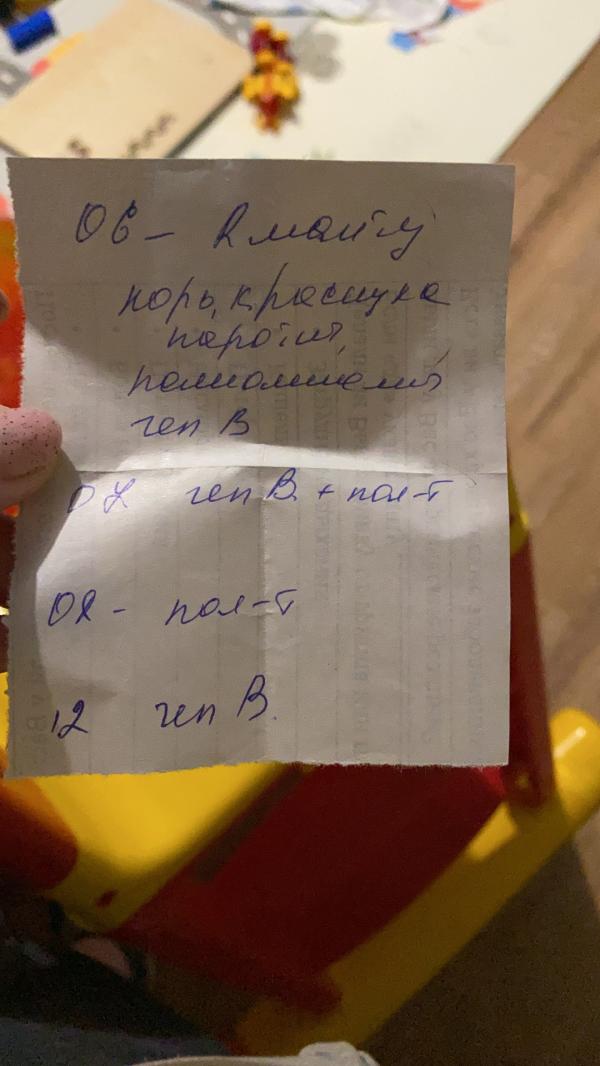 06 - R манту
корь, краснуха
паротит,
полиомиелит
геп В
07 геп В + пол-т
08 - пол-т
12 геп В.